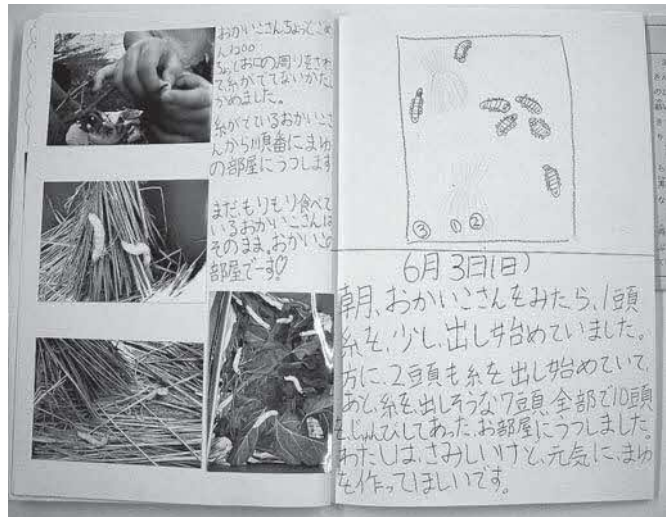 おかいこさんちょっとごめ
んね。
ちょっとお口の周りをさわ
て、糸がでてないかた
かめました。
糸がでているおかいこさ
んから順番にまゆ
の部屋にうつします
まだ、もりもり食べて
いるおかいこさんは
そのまま。おかいこ
部屋でーす♡
③ ① ②
6月3日(日)
朝、おかいこさんをみたら、1頭
糸を、少し、出し始めていました。
方に、2頭も糸を出し始めていて、
あと、糸を、出しそうな7頭、全部で10頭
を、じゅんびしてあった、お部屋にうつしました。
わたしは、さみしいけど、元気に、まゆ
を作ってほしいです。